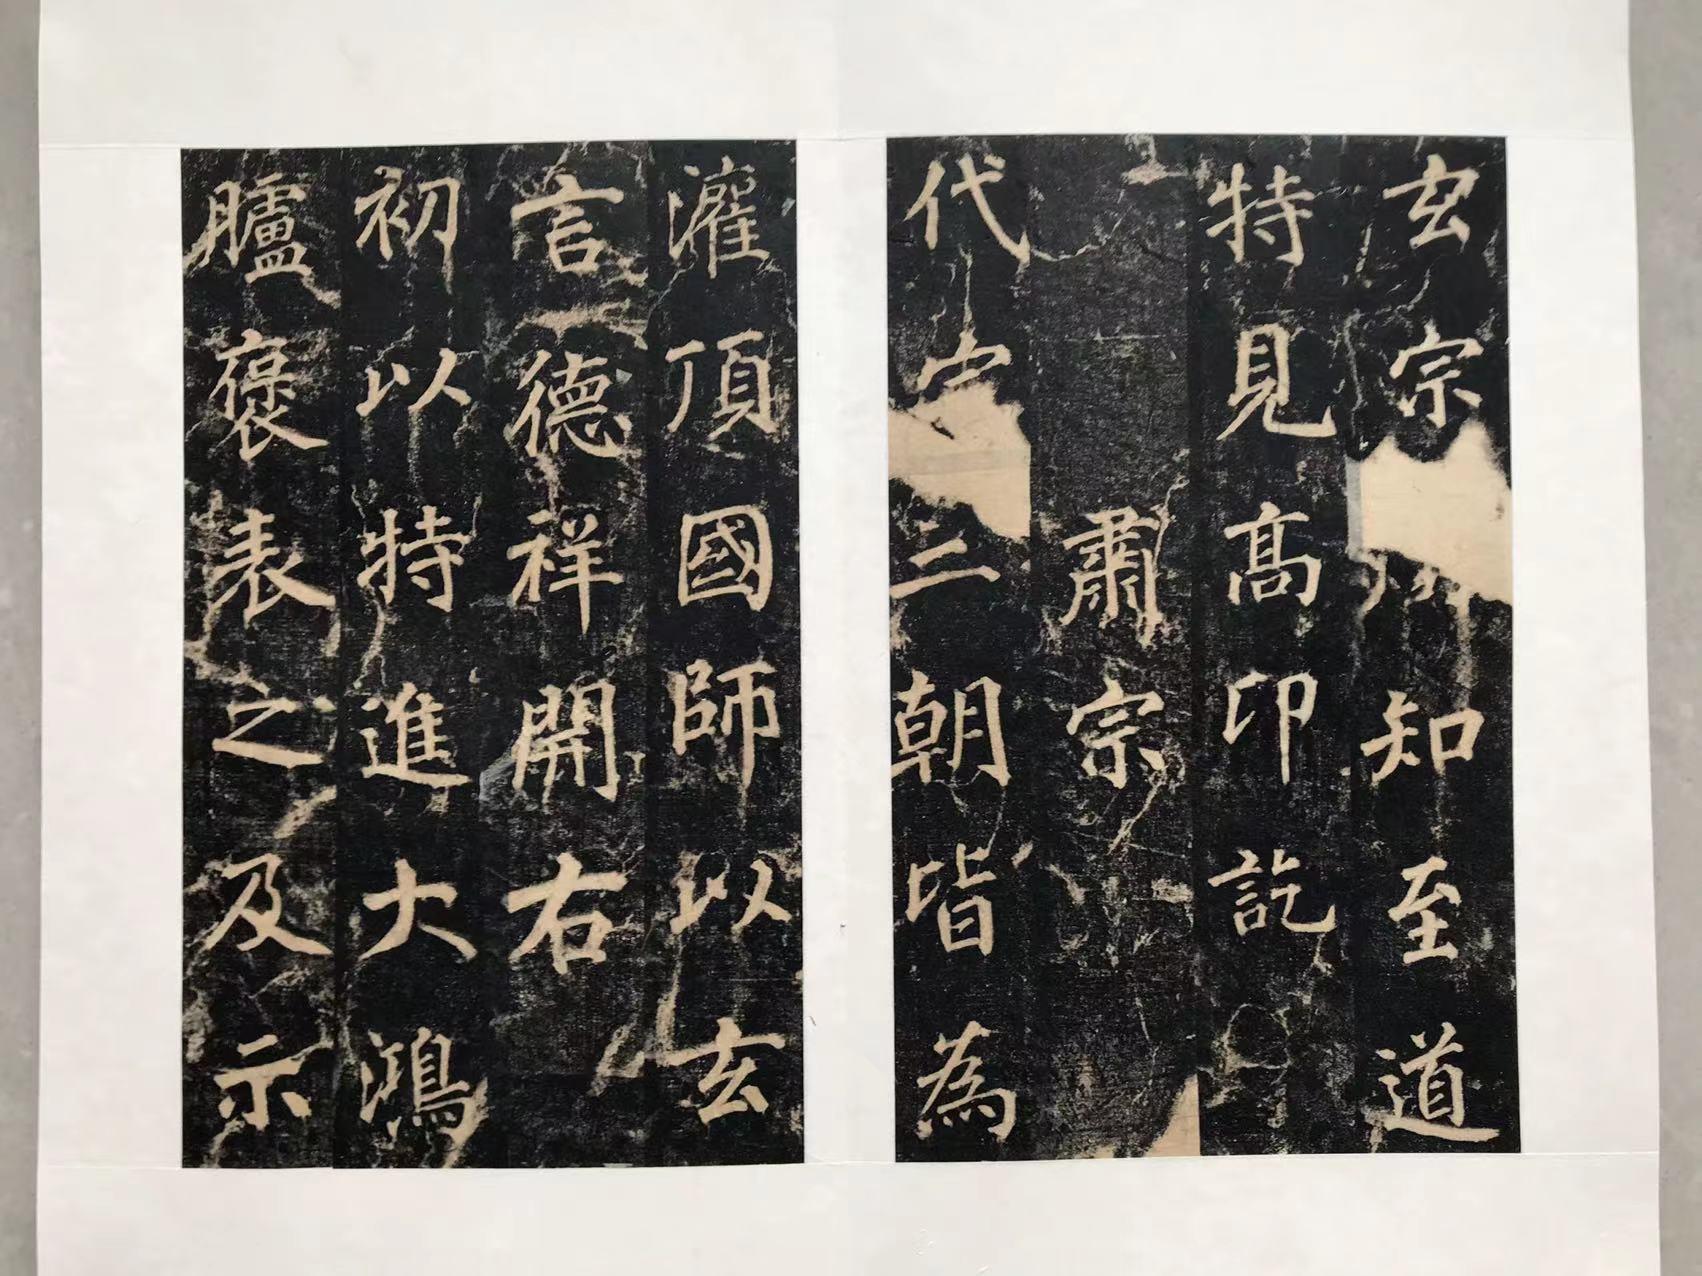 玄宗知至道
特見高印訖
肅宗
代宗三朝皆為
灌頂國師以玄
言德祥開右
初以特進大鴻
臚褒表之及示